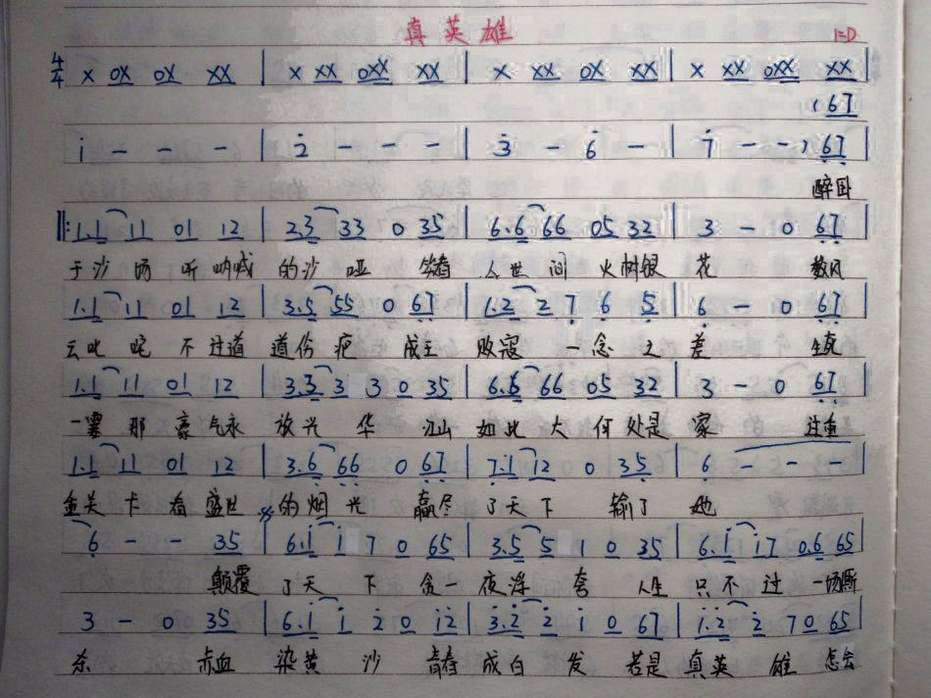 真英雄 1=D
4/4 X 0X 0X XX | X XX 0XX XX | X XX 0X XX | X XX 0XX XX |
(67
i - - - | 2 - - - | 3 - 6 - | 7 - - ) 67 |
醉卧
‖: 1.1 11 01 12 | 2.3 33 0 35 | 6.6 66 05 32 | 3 - 0 67 |
于沙场 听呐喊 的沙哑 笑看 人世间 火树银花 数风
1.1 11 01 12 | 3.5 55 0 67 | 1.2 2 7 6 5 | 6 - 0 67 |
云叱咤 不过道 道伤疤 成王 败寇 一念之差 生死
1.1 11 01 12 | 3.3 3 3 0 35 | 6.6 66 05 32 | 3 - 0 67 |
一霎那 豪气永 放光华 江山 如此大 何处是家 过重
1.1 11 01 12 | 3.6 66 0 67 | 7.1 12 0 35 | 6 - - - |
重关卡 看盛世 的烟光 赢尽 了天下 输了 她
6 - - 35 | 6.i i 7 0 65 | 3.5 5 1 0 35 | 6.i i7 0.6 65 |
颠覆 了天下 贪一 夜浮夸 人生 只不过 一场厮
3 - 0 35 | 6.i i 2 0 i2 | 3.2 2 i 0 67 | i.2 2 7 0 65 |
杀 赤血 染黄沙 青春 成白发 若是 真英雄 怎会